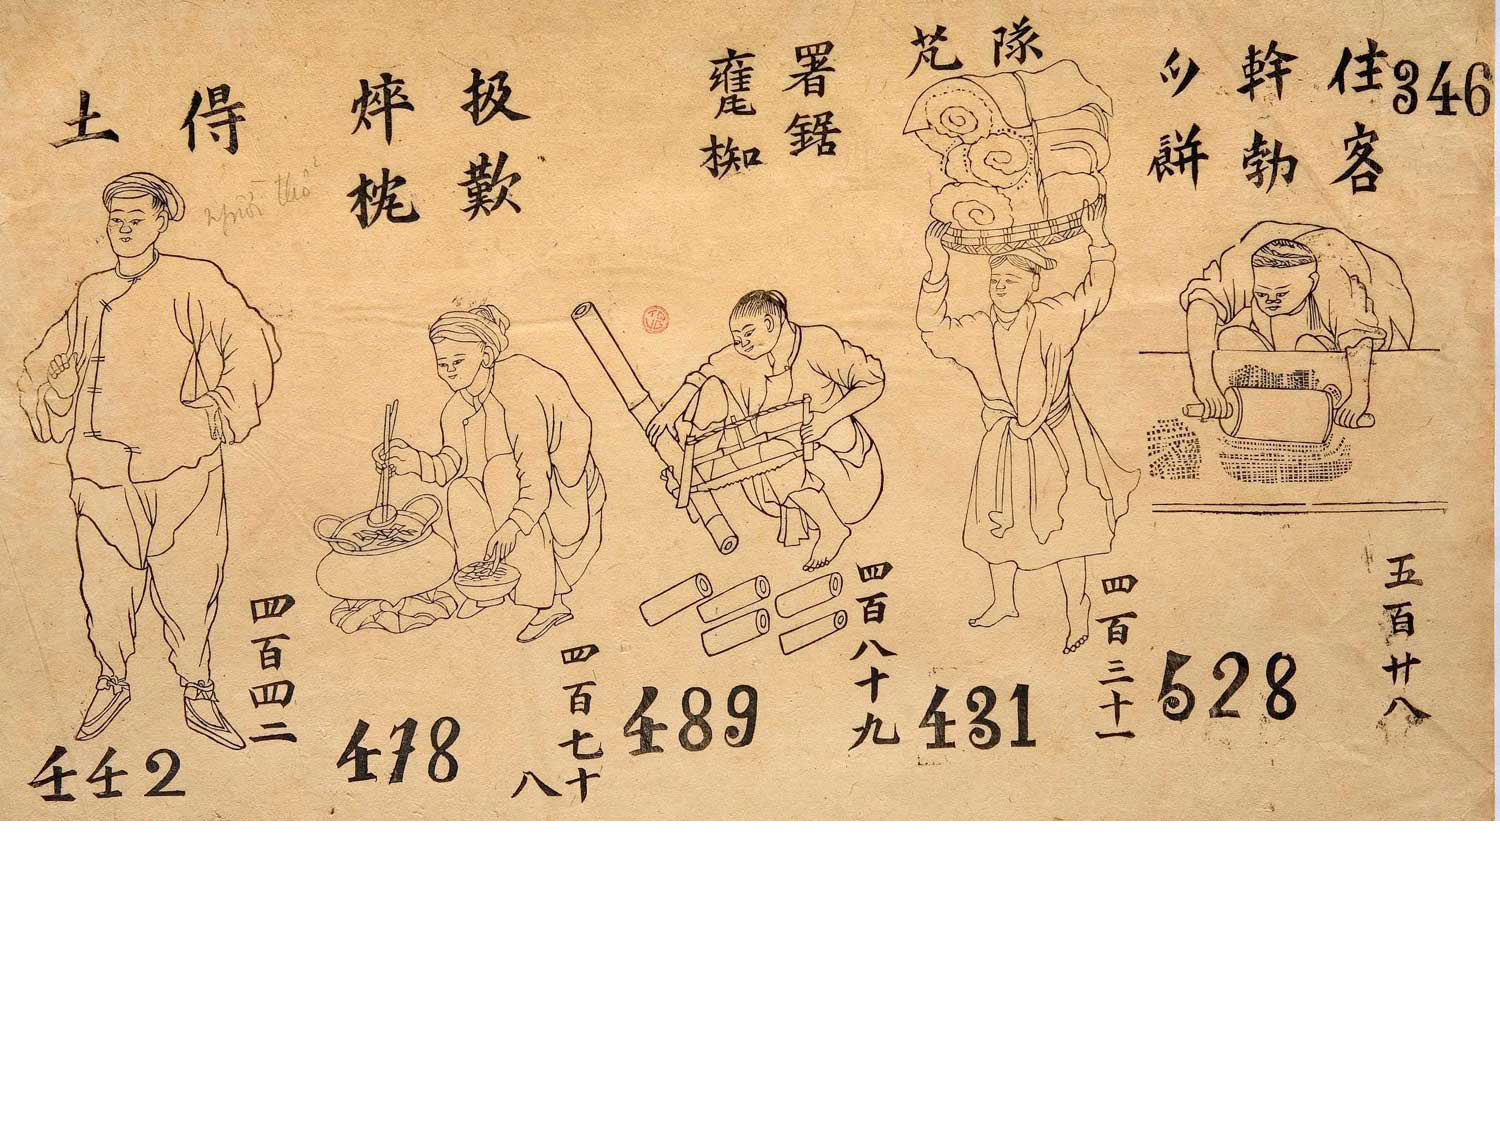 346
住客
幹勃
餅
五百廿八
528
隊
芃
四百三十一
431
署鋸
椥
四百八十九
489
扱歎
焠枕
四百七十八
478
得
土
người thổ
四百四二
442